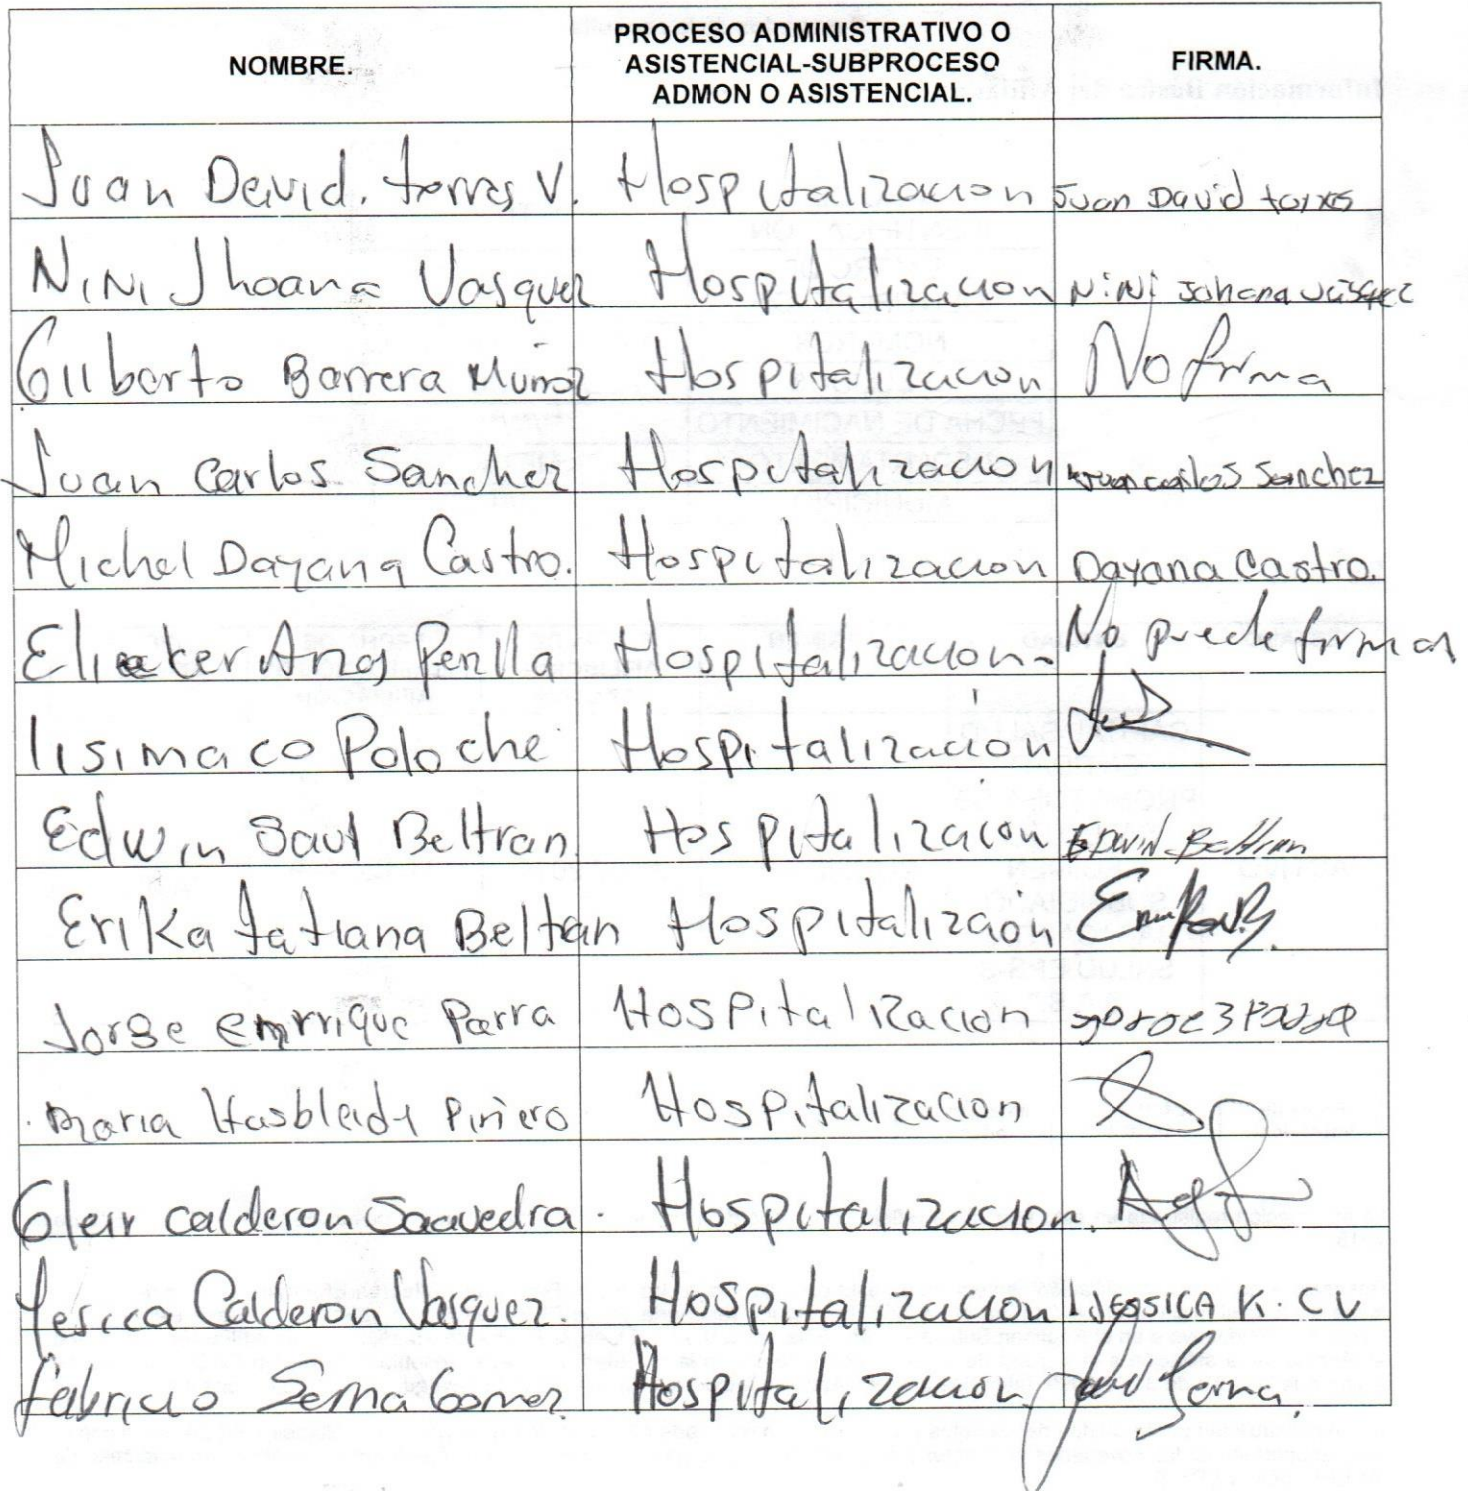 NOMBRE. PROCESO ADMINISTRATIVO O ASISTENCIAL-SUBPROCESO ADMON O ASISTENCIAL. FIRMA.
Juan David. torres V. Hospitalizacion Juan David torres
NiNi Jhoana Vasquez Hospitalizacion NiNi Johana vasquez
Gilberto Barrera Munoz Hospitalizacion No firma
Juan Carlos Sanchez Hospitalizacion Juan carlos Sanchez
Michel Dayana Castro. Hospitalizacion Dayana Castro.
Perilla Hospitalizacion- No puede firmar
lisimaco Poloche Hospitalización
Edwin Saul Beltran Hospitalizacion Edwin Beltran
Erika tatiana Beltran Hospitalización
Jorge enrrique Parra Hospitalizacion
maria Piñero Hospitalizacion
calderon Saavedra. Hospitalizacion.
Yesica Calderon Vasquez. Hospitalizacion JESSICA K. CV
fabricio Serna Gomez Hospitalización Serna.